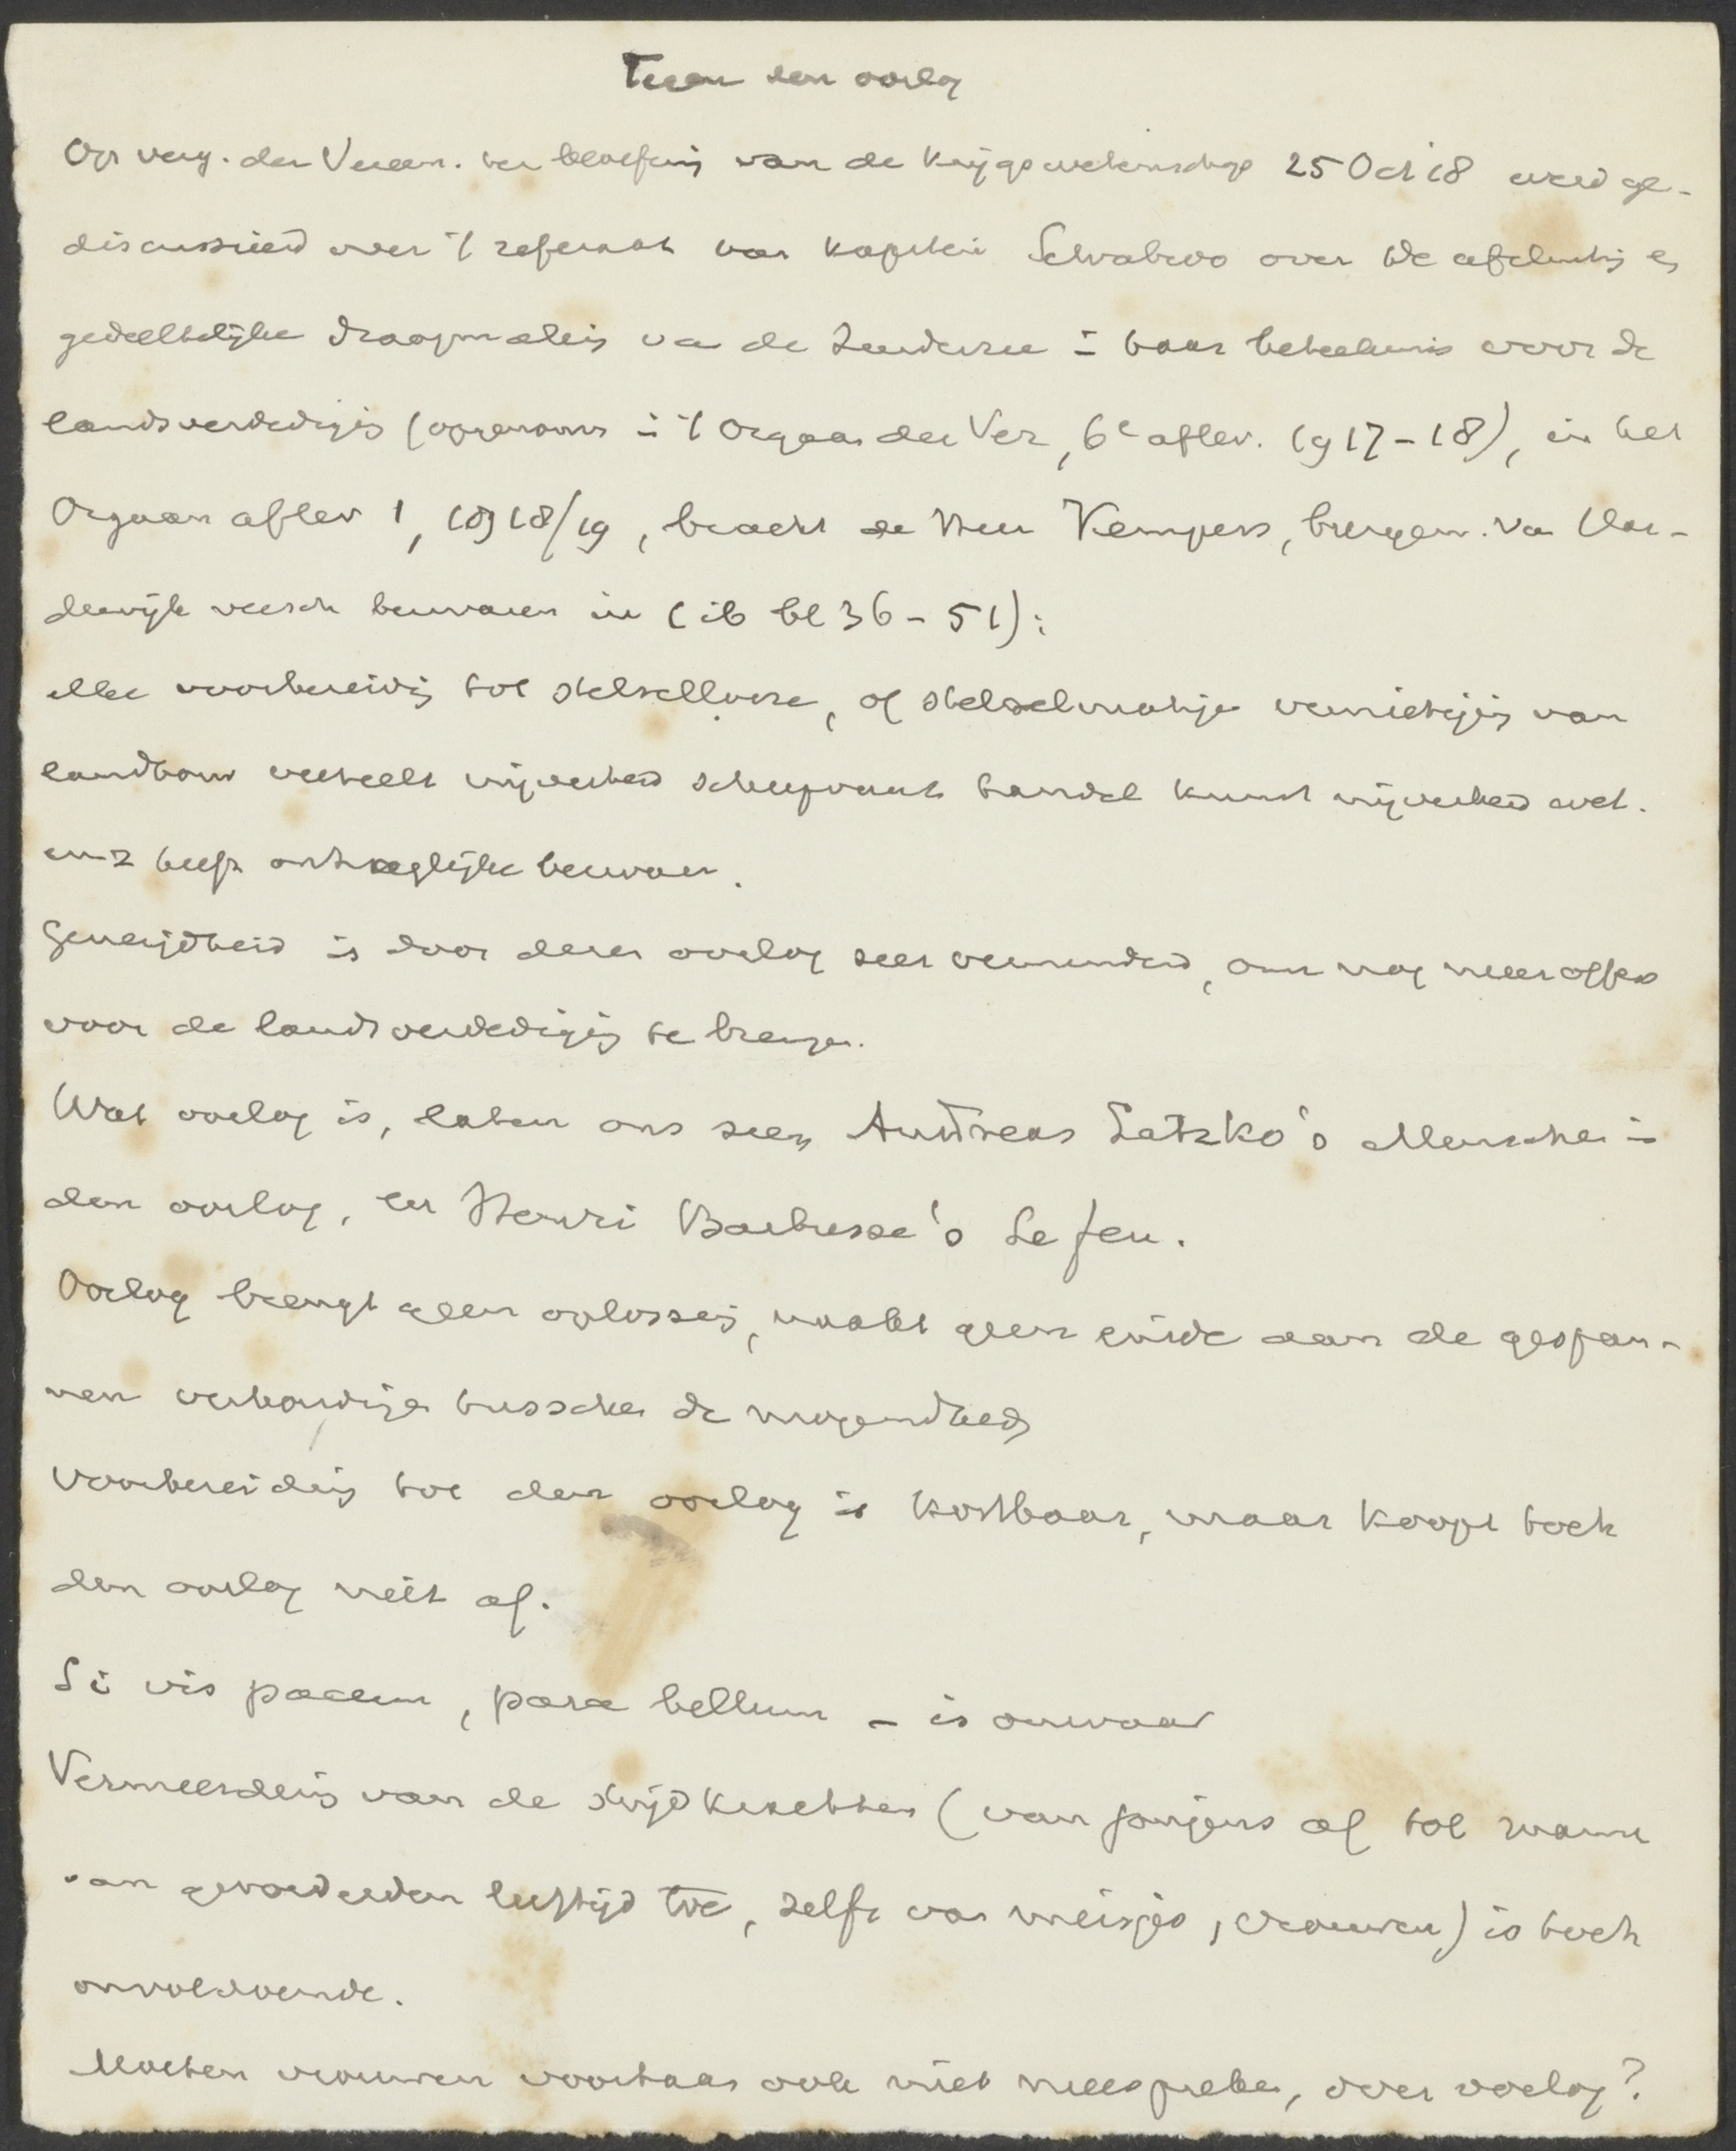 Tegen den oorlog
Op verg. der Vereen. ter beoefening van de krijgswetenschap 25 Oct 18 werd ge-
discussieerd over 't referaat van kapitein Schrabevo over de afsluiting en
gedeeltelijke droogmaking van de Zuiderzee in haar beteekenis voor de
landsverdediging (opgenomen in 't Orgaan der Ver, 6e aflev. 1917-18), in het
Orgaan aflev 1, 1918/19, bracht de Heer Kempers, burgem. van Har-
derwijk veersch bezwaren in (ib bl 36-51):
elke voorbereiding tot stelsellooze, of stelselmatige vernietiging van
landbouw veeteelt nijverheid scheepvaart handel kunst nijverheid wet.
enz heeft ontzaglijke bezwaren.
Geneigdheid is door dezen oorlog zeer verminderd, om nog meer offers
voor de landsverdediging te brengen.
Wat oorlog is, laten ons zien Andreas Latzko's Menschen in
den oorlog, en Henri Barbusse's Le feu.
Oorlog brengt geen oplossing, maakt geen einde aan de gespan-
nen verhoudingen tusschen de mogendheden
Voorbereiding tot den oorlog is kostbaar, maar koopt toch
den oorlog niet af.
Si vis pacem, para bellum - is onwaar
Vermeerdering van de strijdkrachten (van jongens af tot mannen
van gevorderden leeftijd toe, zelfs van meisjes, vrouwen) is toch
onvoldoende.
Moeten vrouwen voortaan ook niet meespreken, over oorlog?